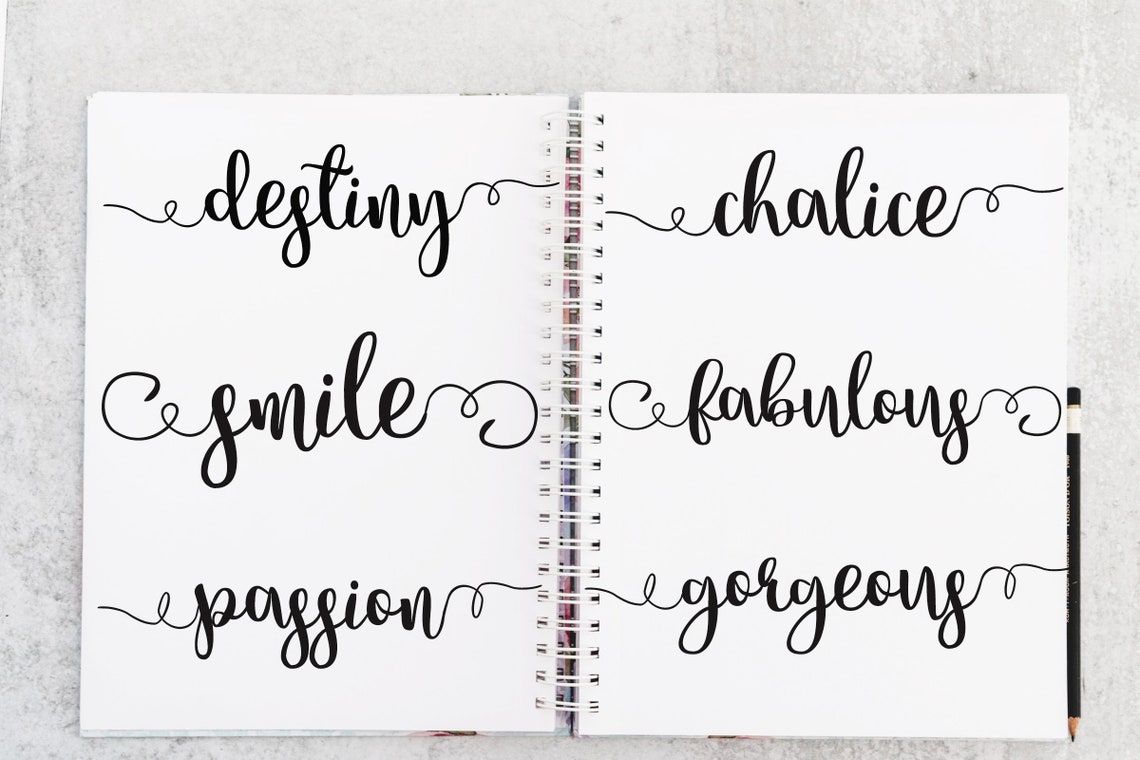 destiny
smile
passion
chalice
fabulous
gorgeous